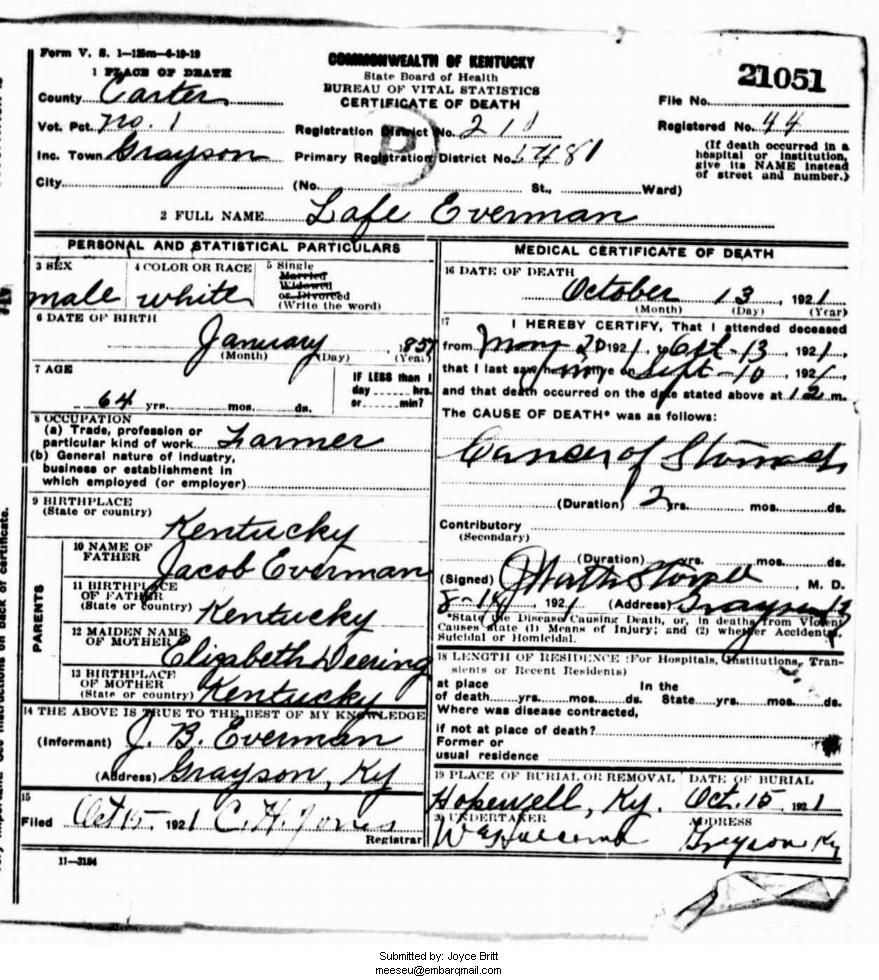 Form V. S. 1—125m—4-19-19
COMMONWEALTH OF KENTUCKY
State Board of Health
BUREAU OF VITAL STATISTICS
CERTIFICATE OF DEATH
21051
1 PLACE OF DEATH
County Carter
Vot. Pct. No. 1
Inc. Town Grayson
City
Registration District No. 211
Primary Registration District No. 5481
(No. St., Ward)
File No.
Registered No. 44
(If death occurred in a
hospital or institution,
give its NAME instead
of street and number.)
P
2 FULL NAME Lafe Everman
PERSONAL AND STATISTICAL PARTICULARS
3 SEX
male
4 COLOR OR RACE
white
5 Single
Married
Widowed
or Divorced
(Write the word)
6 DATE OF BIRTH
January 1857
(Month) (Day) (Year)
7 AGE
64 yrs. mos. ds.
IF LESS than 1
day hrs.
or min?
8 OCCUPATION
(a) Trade, profession or
particular kind of work Farmer
(b) General nature of industry,
business or establishment in
which employed (or employer)
9 BIRTHPLACE
(State or country)
Kentucky
PARENTS
10 NAME OF
FATHER
Jacob Everman
11 BIRTHPLACE
OF FATHER
(State or country)
Kentucky
12 MAIDEN NAME
OF MOTHER
Elizabeth Deering
13 BIRTHPLACE
OF MOTHER
(State or country)
Kentucky
14 THE ABOVE IS TRUE TO THE BEST OF MY KNOWLEDGE
(Informant) J. B. Everman
(Address) Grayson, Ky
15
Filed Oct 15 1921 C. H. Jones
Registrar
11—3184
MEDICAL CERTIFICATE OF DEATH
16 DATE OF DEATH
October 13, 1921
(Month) (Day) (Year)
17
I HEREBY CERTIFY, That I attended deceased
from May 20 1921, Oct-13, 1921,
that I last saw alive on Sept-10, 192
and that death occurred on the date stated above at 12 m.
The CAUSE OF DEATH* was as follows:
Cancer of Stomach
(Duration) 2 yrs. mos. ds.
Contributory
(Secondary)
(Duration) yrs. mos. ds.
(Signed) M. D.
1921 (Address) Grayson
*State the Disease Causing Death, or, in deaths from Violent
Causes state (1) Means of Injury; and (2) whether Accidental,
Suicidal or Homicidal.
18 LENGTH OF RESIDENCE (For Hospitals, Institutions, Tran-
sients or Recent Residents)
at place In the
of death yrs. mos. ds. State yrs. mos. ds.
Where was disease contracted,
if not at place of death?
Former or
usual residence
19 PLACE OF BURIAL OR REMOVAL
Hopewell, Ky.
DATE OF BURIAL
Oct. 15, 1921
20 UNDERTAKER
ADDRESS
Grayson Ky
Submitted by: Joyce Britt
meeseu@embarqmail.com